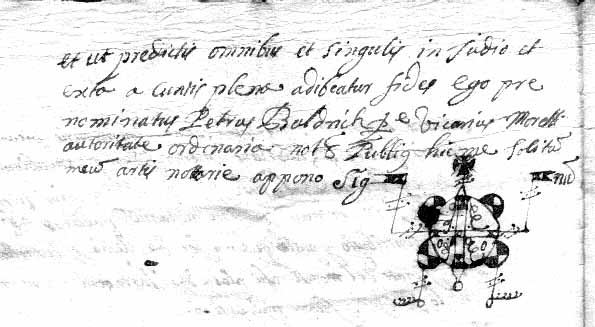 et ut predictis omnibus et singulis in Judio et
extra a cunctis plena adibeatur fides ego pre
nominatus Petrus Baldrich Pe vicarius Morelli
autoritate ordinaria not Publiq hic me solitu
meu artis notarie appono Sig nu